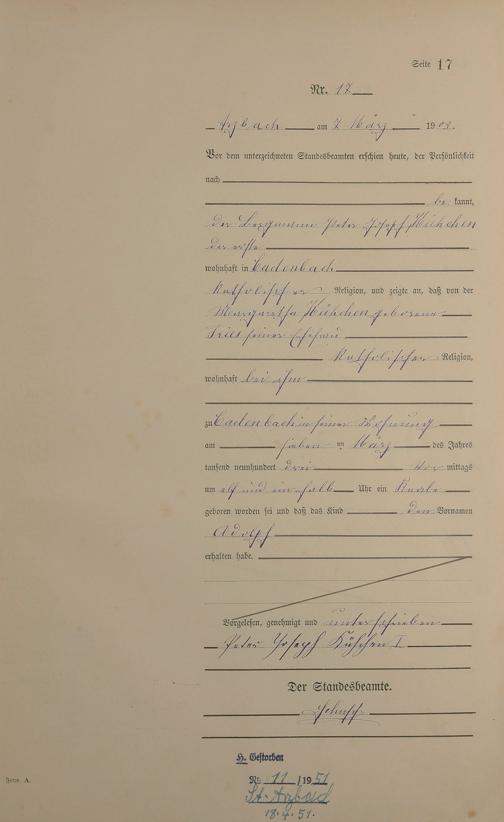 Seite 17
Nr. 17
Arzbach am 7 März 1903.
Vor dem unterzeichneten Standesbeamten erschien heute, der Persönlichkeit
nach
be kannt,
der Bergmann Peter Josef
der erste
wohnhaft in Cadenbach
Katholischer Religion, und zeigte an, daß von der
Margaretha geborene
Fries seiner Ehefrau
Katholischer Religion,
wohnhaft bei ihm
zu Cadenbach in seiner Wohnung
am sieben ten März des Jahres
tausend neunhundert drei Vor mittags
um elf und ein halb Uhr ein Knabe
geboren worden sei und daß das Kind den Vornamen
Adolf
erhalten habe.
Vorgelesen, genehmigt und unterschrieben
Peter Joseph I
Der Standesbeamte.
H. Gestorben
Nr. 11 / 1951
St. A. Arzbach
18.4.51.